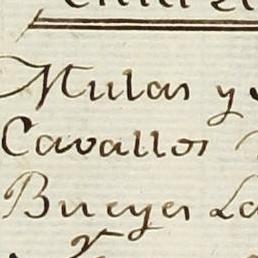 Mulas y
Cavallos
Bueyes La